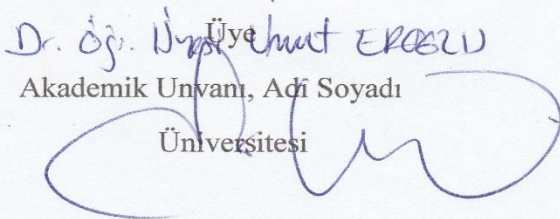 Üye
Dr. Öğr. Üyesi Umut
Akademik Unvanı, Adı Soyadı
Üniversitesi